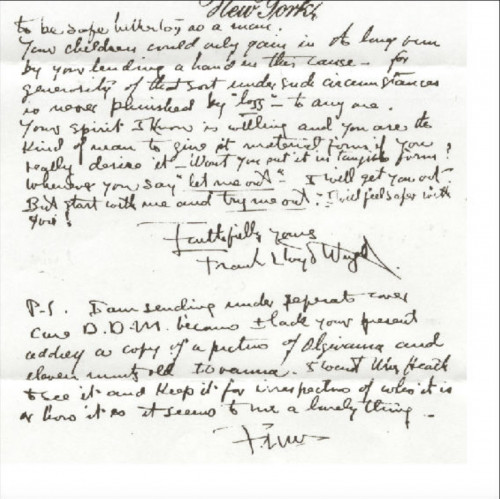 New York
to be safe as a man.
Your children could only gain in the long run
by your lending a hand in this cause – for
generosity of that sort under such circumstances
is never punished by "loss" – to any one.
Your spirit I know is willing and you are the
kind of man to give it material form if you
really desire it – Wont you put it in tangible form?
Whenever you say "let me out" – I will get you out –
But start with me and try me out. I will feel safer with
you!
Faithfully yours
Frank Lloyd Wright
P.S. I am sending under seperate cover
care D.D.M. because I lack your present
address a copy of a picture of Olgivanna and
eleven months old Iovanna. I want Mrs Heath
to see it and keep it for irrespective of who it is
or how it is it seems to me a lovely thing –
F.Ll.W –